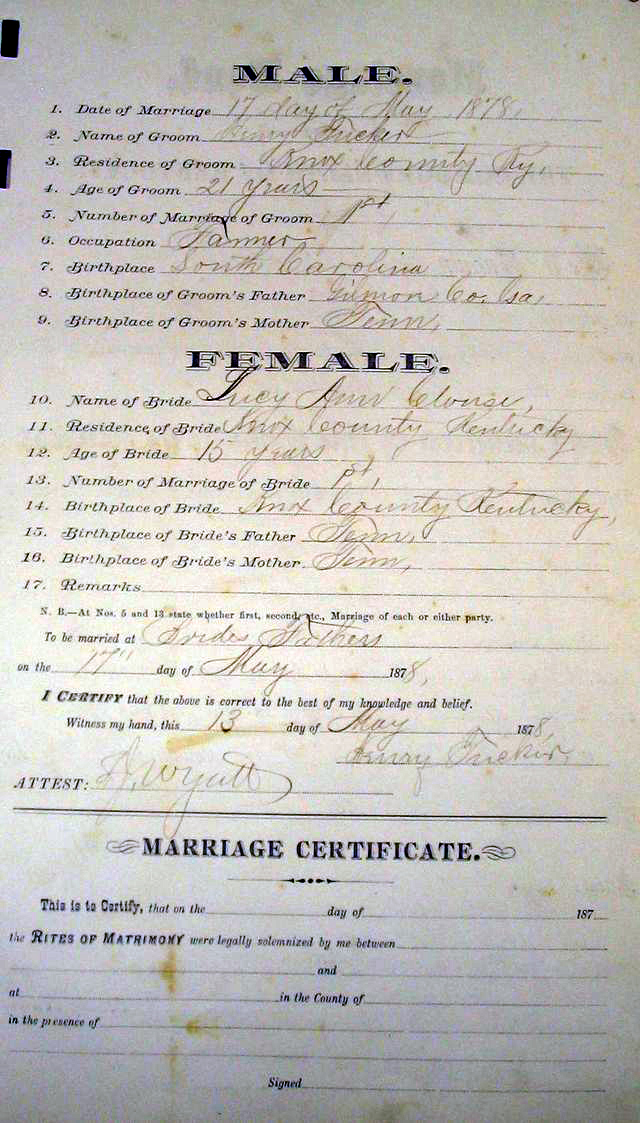 MALE.
1. Date of Marriage 17 day of May 1878,
2. Name of Groom Henry Tucker
3. Residence of Groom Knox County Ky,
4. Age of Groom 21 years
5. Number of Marriage of Groom 1st,
6. Occupation Farmer
7. Birthplace South Carolina
8. Birthplace of Groom's Father Co.
9. Birthplace of Groom's Mother Tenn,
FEMALE.
10. Name of Bride Lucy Ann
11. Residence of Bride Knox County Kentucky
12. Age of Bride 15 years
13. Number of Marriage of Bride 1st,
14. Birthplace of Bride Knox County Kentucky,
15. Birthplace of Bride's Father Tenn,
16. Birthplace of Bride's Mother Tenn,
17. Remarks
N. B.—At Nos. 5 and 13 state whether first, second, etc., Marriage of each or either party.
To be married at Brides Fathers
on the 17" day of May 1878,
I CERTIFY that the above is correct to the best of my knowledge and belief.
Witness my hand, this 13 day of May 1878,
Henry Tucker,
ATTEST: Wyatt
MARRIAGE CERTIFICATE.
This is to Certify, that on the day of 187
the RITES OF MATRIMONY were legally solemnized by me between
and
at in the County of
in the presence of
Signed